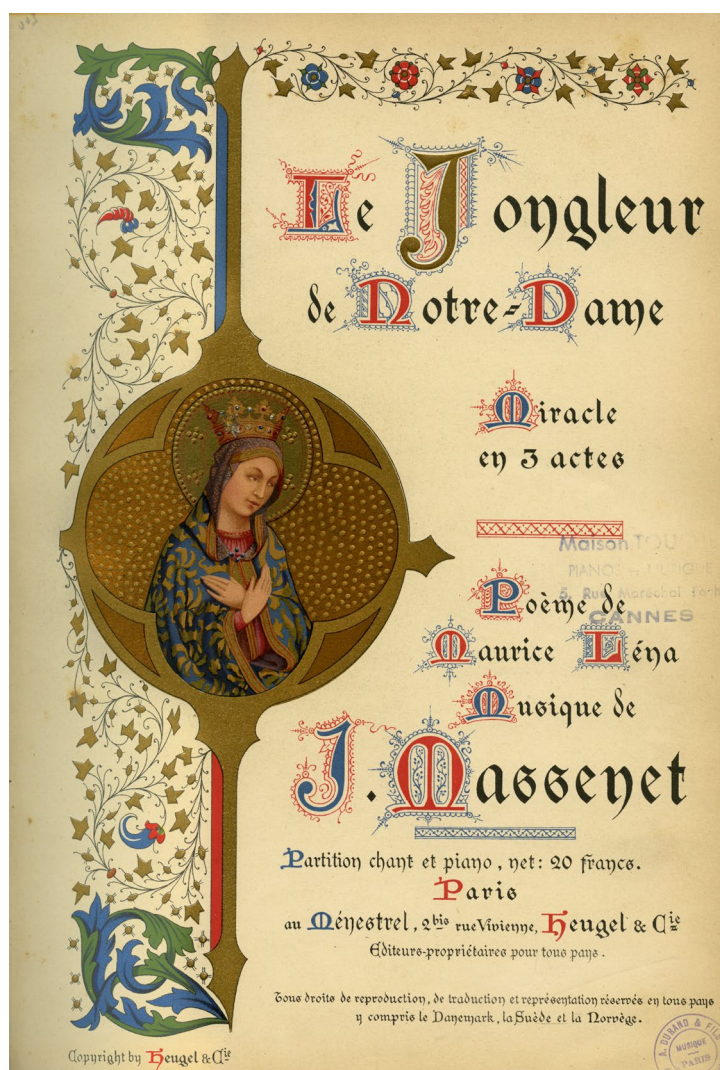 Le Jongleur
de Notre-Dame
Miracle
en 3 actes
Maison
PIANOS
5, Rue Maréchal
CANNES
Poème de
Maurice Léna
Musique de
J. Massenet
Partition chant et piano, net: 20 francs.
Paris
au Ménestrel, 2bis rue Vivienne, Heugel & Cie
Editeurs-propriétaires pour tous pays.
Tous droits de reproduction, de traduction et représentation réservés en tous pays
y compris le Danemark, la Suède et la Norvège.
Copyright by Heugel & Cie
A. DURAND & FILS
MUSIQUE
PARIS